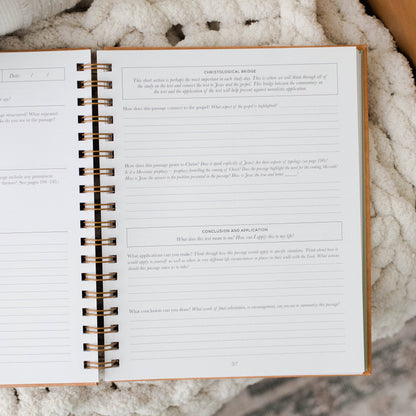 Date: / /
ge?
structured? What repeated
do you see in the passage?
include any prominent
themes? See pages 196-97.)
CHRISTOLOGICAL BRIDGE
This short section is perhaps the most important in each study day. This is where we will think through all of
the study on the text and connect the text to Jesus and the gospel. This bridge between the commentary on
the text and the application of the text will help prevent against moralistic application.
How does this passage connect to the gospel? What aspect of the gospel is highlighted?
How does this passage point to Christ? Does it speak explicitly of Jesus? Are there aspects of typology (see page 198)?
Is it a Messianic prophecy — prophecy foretelling the coming of Christ? Does the passage highlight the need for the coming Messiah?
How is Jesus the answer to the problem presented in the passage? How is Jesus the true and better
CONCLUSION AND APPLICATION
What does this text mean to me? How can I apply this to my life?
What applications can you make? Think through how this passage would apply to specific situations. Think about how it
would apply to yourself as well as others in very different life circumstances or places in their walk with the Lord. What actions
should this passage cause us to take?
What conclusion can you draw? What words of final exhortation, or encouragement, can you use to summarize this passage?